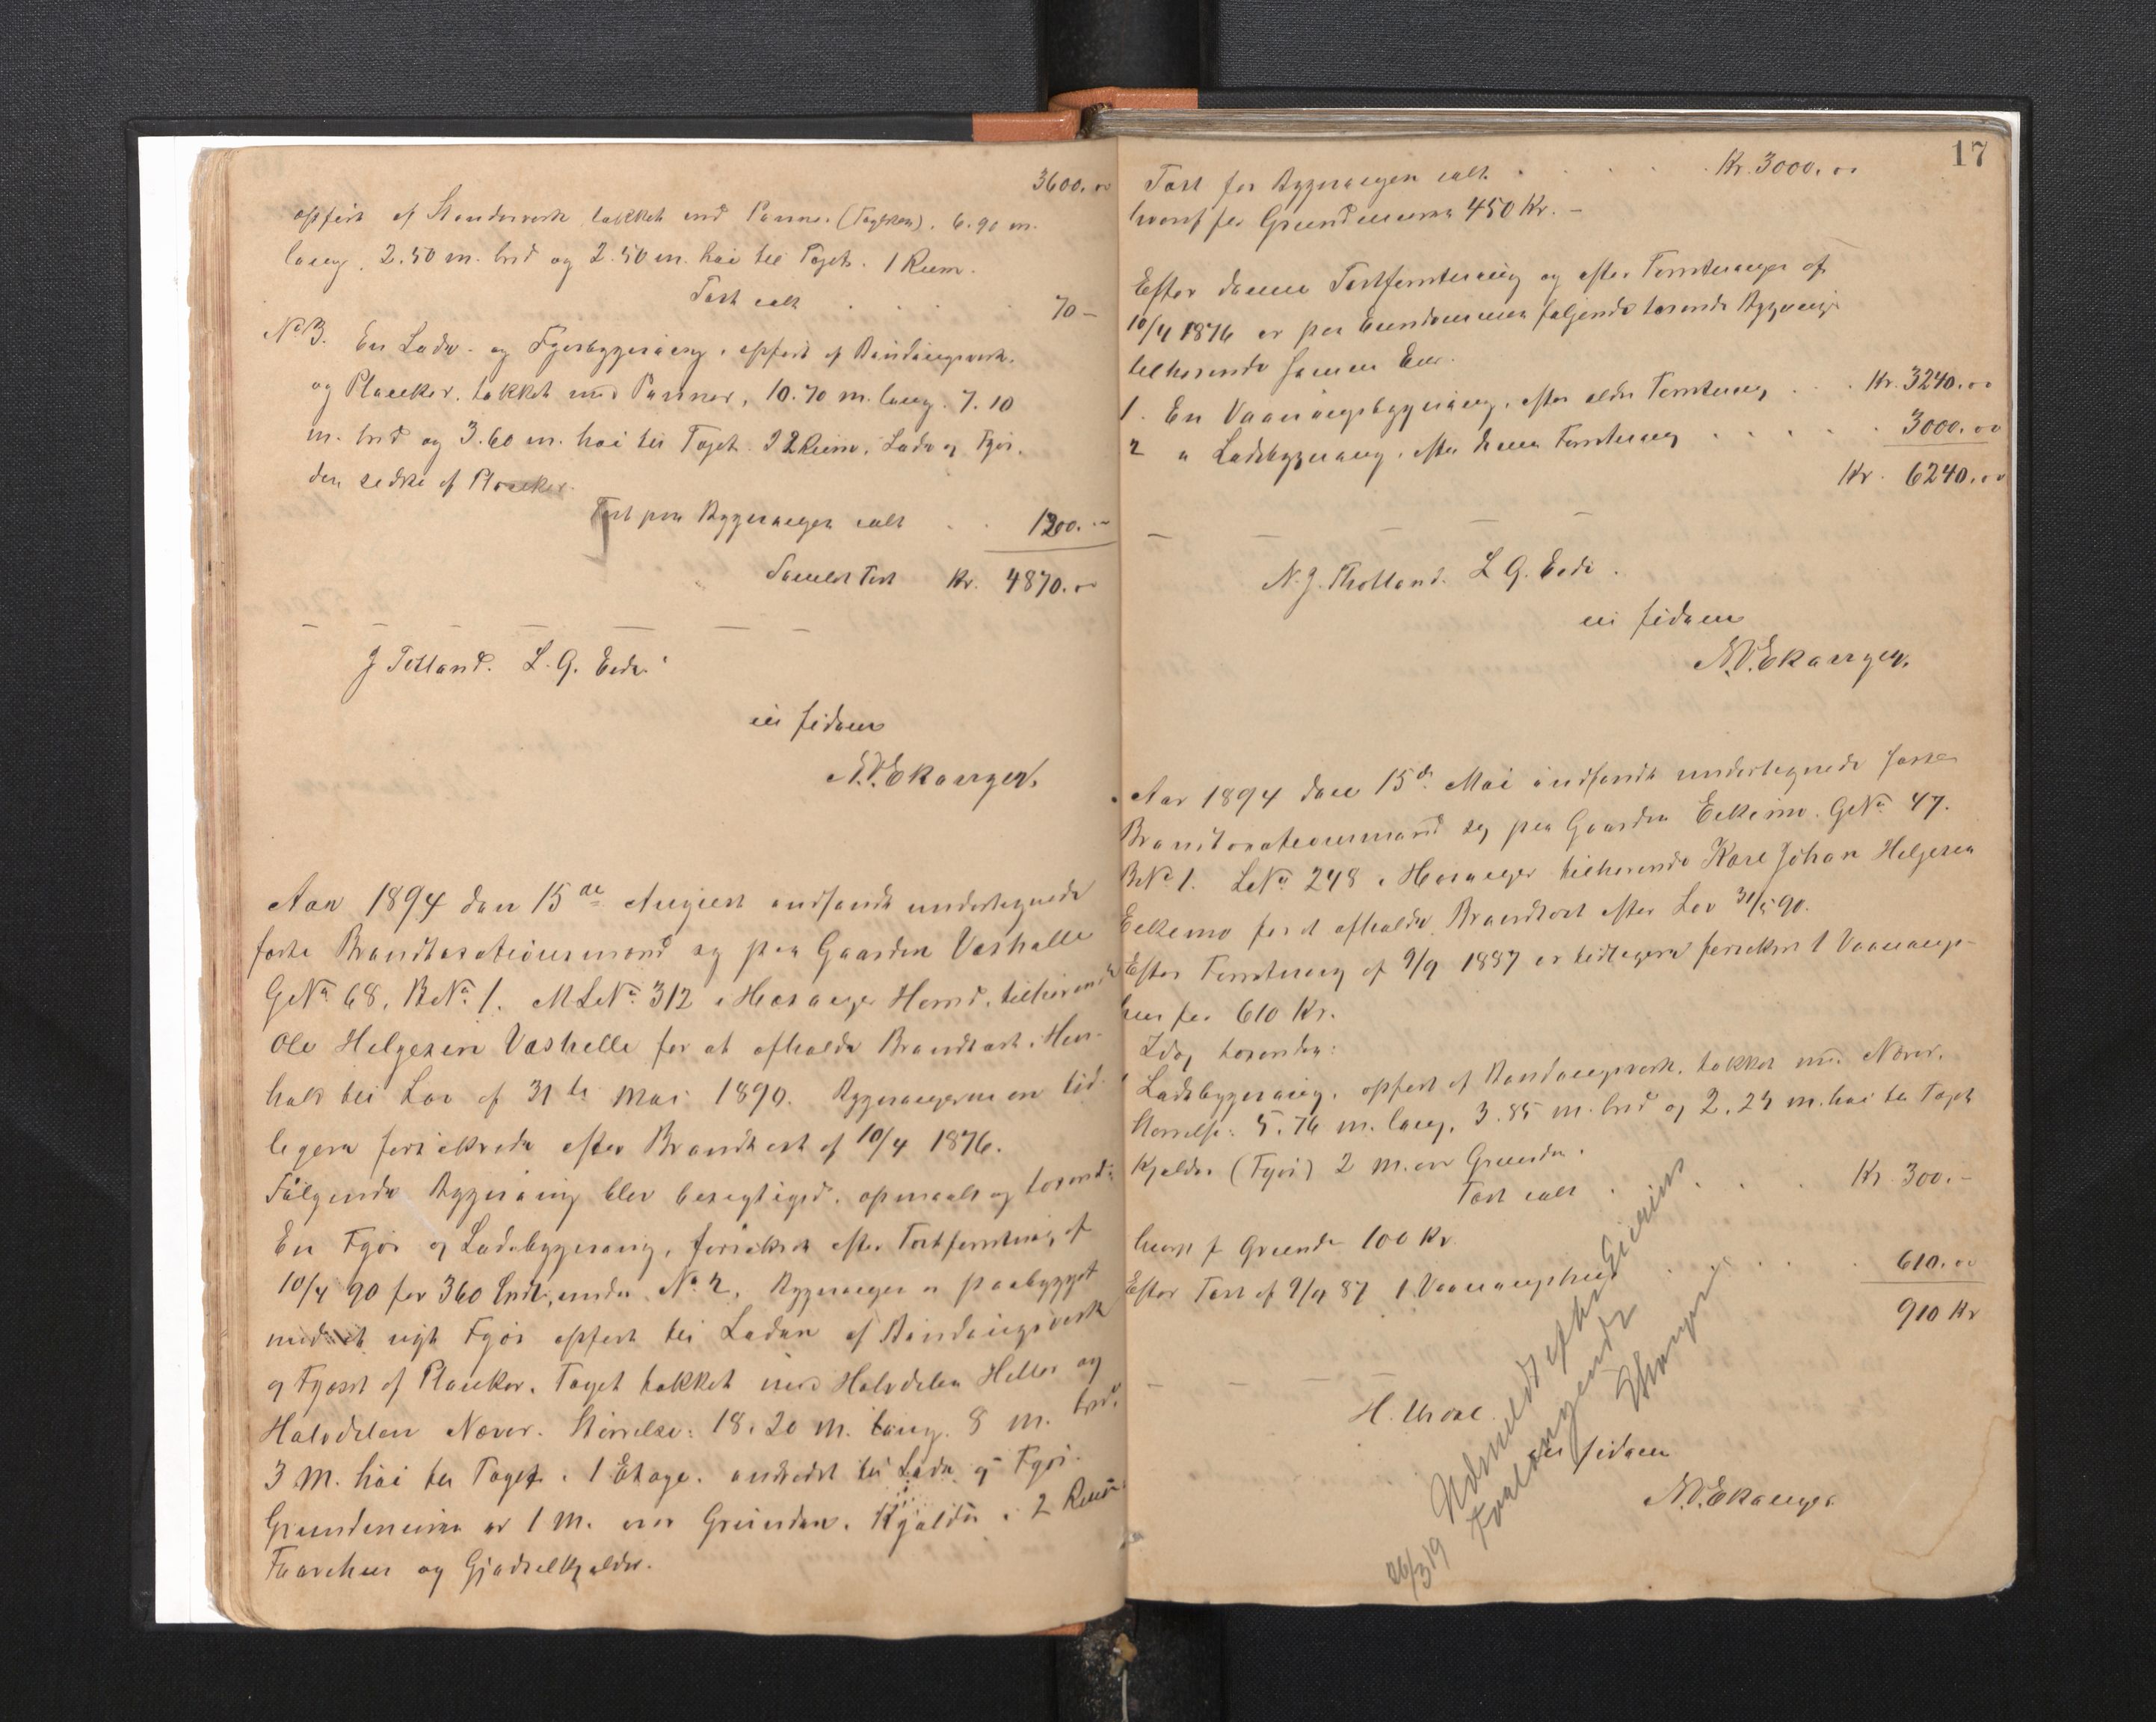 3600.00
opført af Standerverk takket med Panner. (Tagsten). 6.90 m.
lang. 2.50 m. bred og 2.50 m. høi til Taget. 1 Rum.
Taxt ialt . . . . 70 –
No 3. En Lade- og Fjøsbygning, opført af Bindingsverk
og Planker. takket med Panner, 10.70 m. lang. 7.10
m. bred og 3.60 m. høi til Taget. 2 Rum. Lade og Fjøs.
den sidste af Planker.
Taxt paa Bygningen ialt . . 1200.–
Samlet Taxt Kr. 4870.00
J Totland. L. G. Eide.
in fidem
N.N.Ekanger.
Aar 1894 den 15de August indfandt undertegnede
faste Brandtaxationsmænd sig paa Gaarden Vashelle
GNo 68, BNo 1. MLNo 312 i Hosanger Herred, tilhørende
Ole Helgesen Vashelle for at afholde Brandtaxt i Hen-
hold til Lov af 31te Mai 1890. Bygningerne er tid-
ligere forsikrede efter Brandtaxt af 10/4 1876.
Følgende Bygning blev besigtiget, opmaalt og taxeret:
En Fjøs og Ladebygning, forsikret efter Taxtforretning af
10/4 90 for 360 Spd, under No 2. Bygningen er paabygget
med et nyt Fjøs opført til Laden af Bindingsverk
og Fjøset af Planker. Taget takket med Halvdelen Heller og
Halvdelen Næver. Størrelse: 18.20 m. lang. 8 m. bred.
3 m. høi til Taget. 1 Etage. indredet til Lade og Fjøs.
Grundmuren er 1 M. over Grunden. Kjælder i 2 Rum:
Faarehus og Gjødselkjælder.
17
Taxt for Bygningen ialt . . . . Kr. 3000.00
hvoraf for Grundmuren 450 Kr. –
Efter denne Taxtforretning og efter Forretningen af
10/4 1876 er paa Eiendommen følgende taxerede Bygninger
tilhørende samme Eier.
1. En Vaaningsbygning, efter ældre Forretning . . Kr. 3240.00
2 " Ladebygning. efter denne Forretning . . . . . 3000.00
Kr. 6240.00
N. J. Tholland. L G. Eide.
in fidem
N.N.Ekanger.
Aar 1894 den 15de Mai indfandt undertegnede faste
Brandtaxationsmænd sig paa Gaarden Eikemo. GNo 47.
BNo 1. LNo 248 i Hosanger tilhørende Karl Johan Helgesen
Eikemo for at afholde Brandtaxt efter Lov 31/5 90.
Efter Forretning af 9/9 1887 er tidligere forsikret 1 Vaanings-
hus for 610 Kr.
Idag taxeredes:
Ladebygning, opført af Bindingsverk, takket med Næver.
Størrelse: 5.76 m. lang, 3.85 m. bred og 2.23 m. høi til Taget
Kjælder (Fjøs) 2 m. over Grunden.
Taxt ialt . . . . Kr. 300.–
hvoraf f Grunden 100 Kr.
Efter Taxt af 9/9 87 1 Vaaningshus . . . . 610.00
910 Kr
H.
in fidem
N.N.Ekanger
Udmeldt efter Eierens
Forlangende
26/3 19 Ekanger